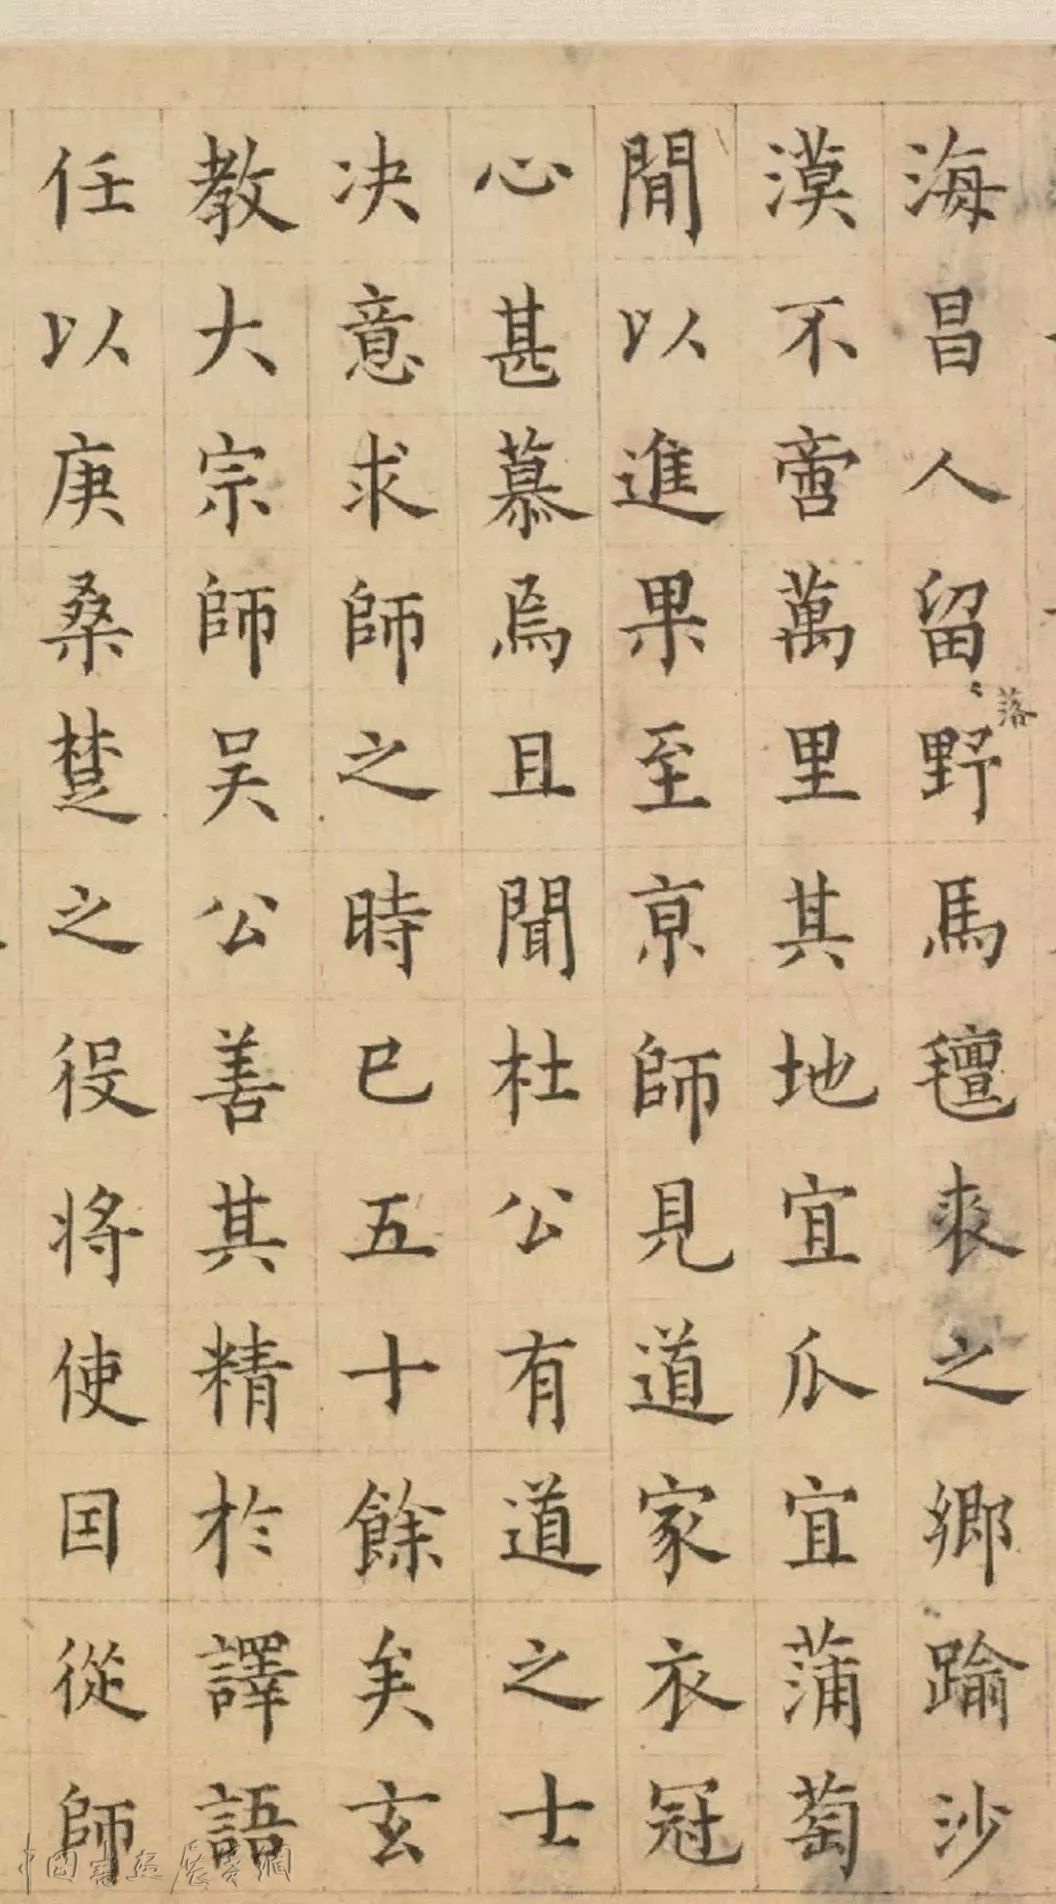 海昌人留落野馬氊裘之鄉踰沙
漠不啻萬里其地宜瓜宜蒲萄
閒以進果至京師見道家衣冠
心甚慕焉且聞杜公有道之士
决意求師之時已五十餘矣玄
教大宗師吴公善其精於譯語
任以庚桑楚之役將使因從師